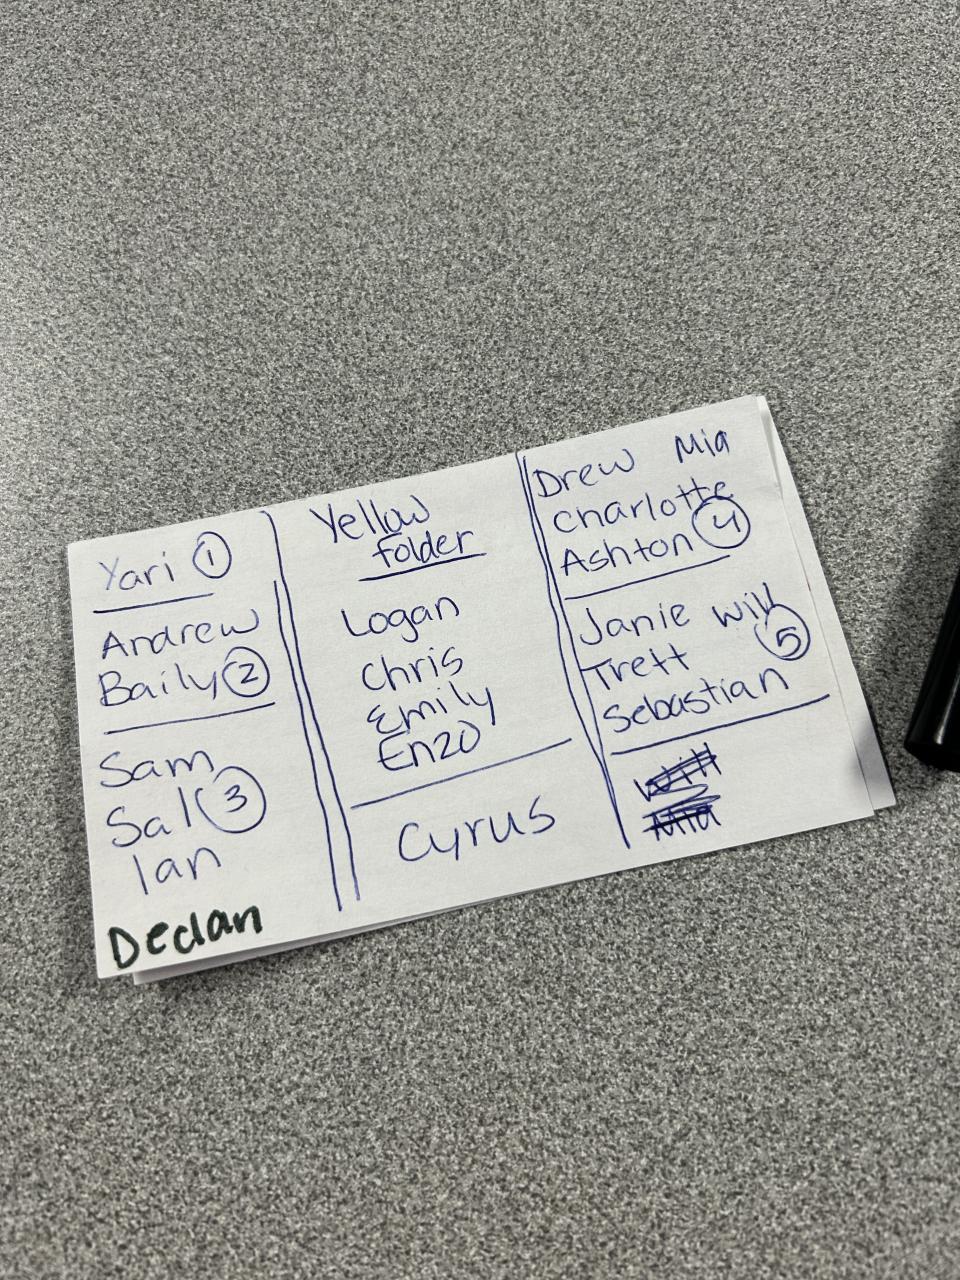 Yari 1
Andrew
Baily 2
Sam
Sal 3
Ian
Declan
Yellow
folder
Logan
Chris
Emily
Enzo
Cyrus
Drew Mia
Charlotte
Ashton 4
Janie Will
Trett 5
Sebastian
Will
Mia